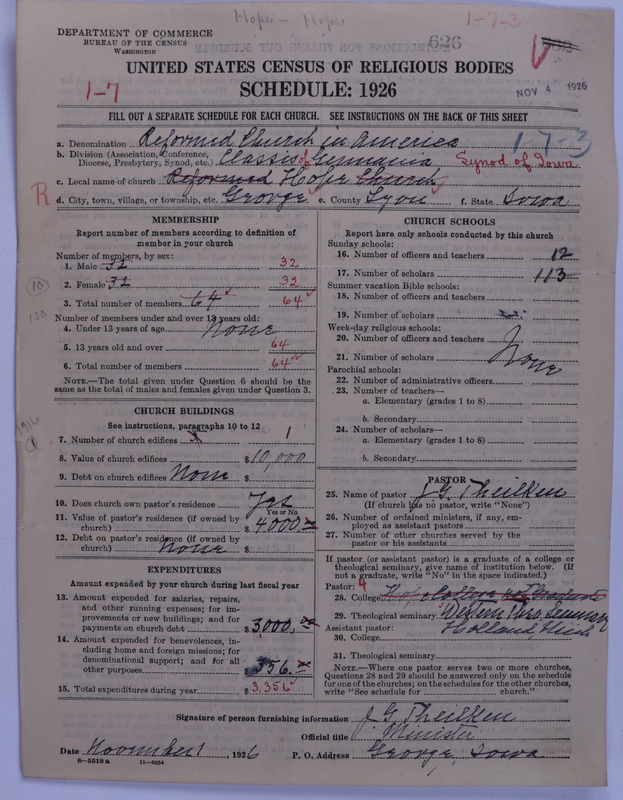 Hope - Hope
1-7-3
DEPARTMENT OF COMMERCE
BUREAU OF THE CENSUS
WASHINGTON
626
NOV 4 1926
UNITED STATES CENSUS OF RELIGIOUS BODIES
1-7
SCHEDULE: 1926
FILL OUT A SEPARATE SCHEDULE FOR EACH CHURCH. SEE INSTRUCTIONS ON THE BACK OF THIS SHEET
a. Denomination Reformed Church in America 1-7-3
b. Division (Association, Conference, Diocese, Presbytery, Synod, etc.) Classis of Germania Synod of Iowa
c. Local name of church Reformed Hope Church
R
d. City, town, village, or township, etc. George e. County Lyon f. State Iowa
MEMBERSHIP
Report number of members according to definition of
member in your church
Number of members, by sex:
1. Male 32 32
2. Female 32 32
3. Total number of members 64 64
Number of members under and over 13 years old:
4. Under 13 years of age None
5. 13 years old and over 64
6. Total number of members 64
NOTE.—The total given under Question 6 should be the
same as the total of males and females given under Question 3.
10
130
CHURCH BUILDINGS
See instructions, paragraphs 10 to 12
7. Number of church edifices 1
8. Value of church edifices $10,000
9. Debt on church edifices None $
10. Does church own pastor's residence Yes
Yes or No
11. Value of pastor's residence (if owned by
church) $4000
12. Debt on pastor's residence (if owned by
church) None $
1916
EXPENDITURES
Amount expended by your church during last fiscal year
13. Amount expended for salaries, repairs,
and other running expenses; for im-
provements or new buildings; and for
payments on church debt $3000.
14. Amount expended for benevolences, in-
cluding home and foreign missions; for
denominational support; and for all
other purposes 356.
15. Total expenditures during year $3,356
CHURCH SCHOOLS
Report here only schools conducted by this church
Sunday schools:
16. Number of officers and teachers 12
17. Number of scholars 113
Summer vacation Bible schools:
18. Number of officers and teachers
19. Number of scholars
Week-day religious schools:
20. Number of officers and teachers
21. Number of scholars None
Parochial schools:
22. Number of administrative officers
23. Number of teachers—
a. Elementary (grades 1 to 8)
b. Secondary
24. Number of scholars—
a. Elementary (grades 1 to 8)
b. Secondary
PASTOR
25. Name of pastor J. G. Theilken
(If church has no pastor, write "None")
26. Number of ordained ministers, if any, em-
ployed as assistant pastors
27. Number of other churches served by the
pastor or his assistants
If pastor (or assistant pastor) is a graduate of a college or
theological seminary, give name of institution below. (If
not a graduate, write "No" in the space indicated.)
Pastor:
28. College
29. Theological seminary Western Theo Seminary
Assistant pastor: Holland Mich
30. College
31. Theological seminary
NOTE.—Where one pastor serves two or more churches,
Questions 28 and 29 should be answered only on the schedule
for one of the churches; on the schedules for the other churches,
write "See schedule for church."
Signature of person furnishing information J G Theilken
Official title Minister
Date November 1, 1926 P. O. Address George, Iowa
8-5518a 11-9054